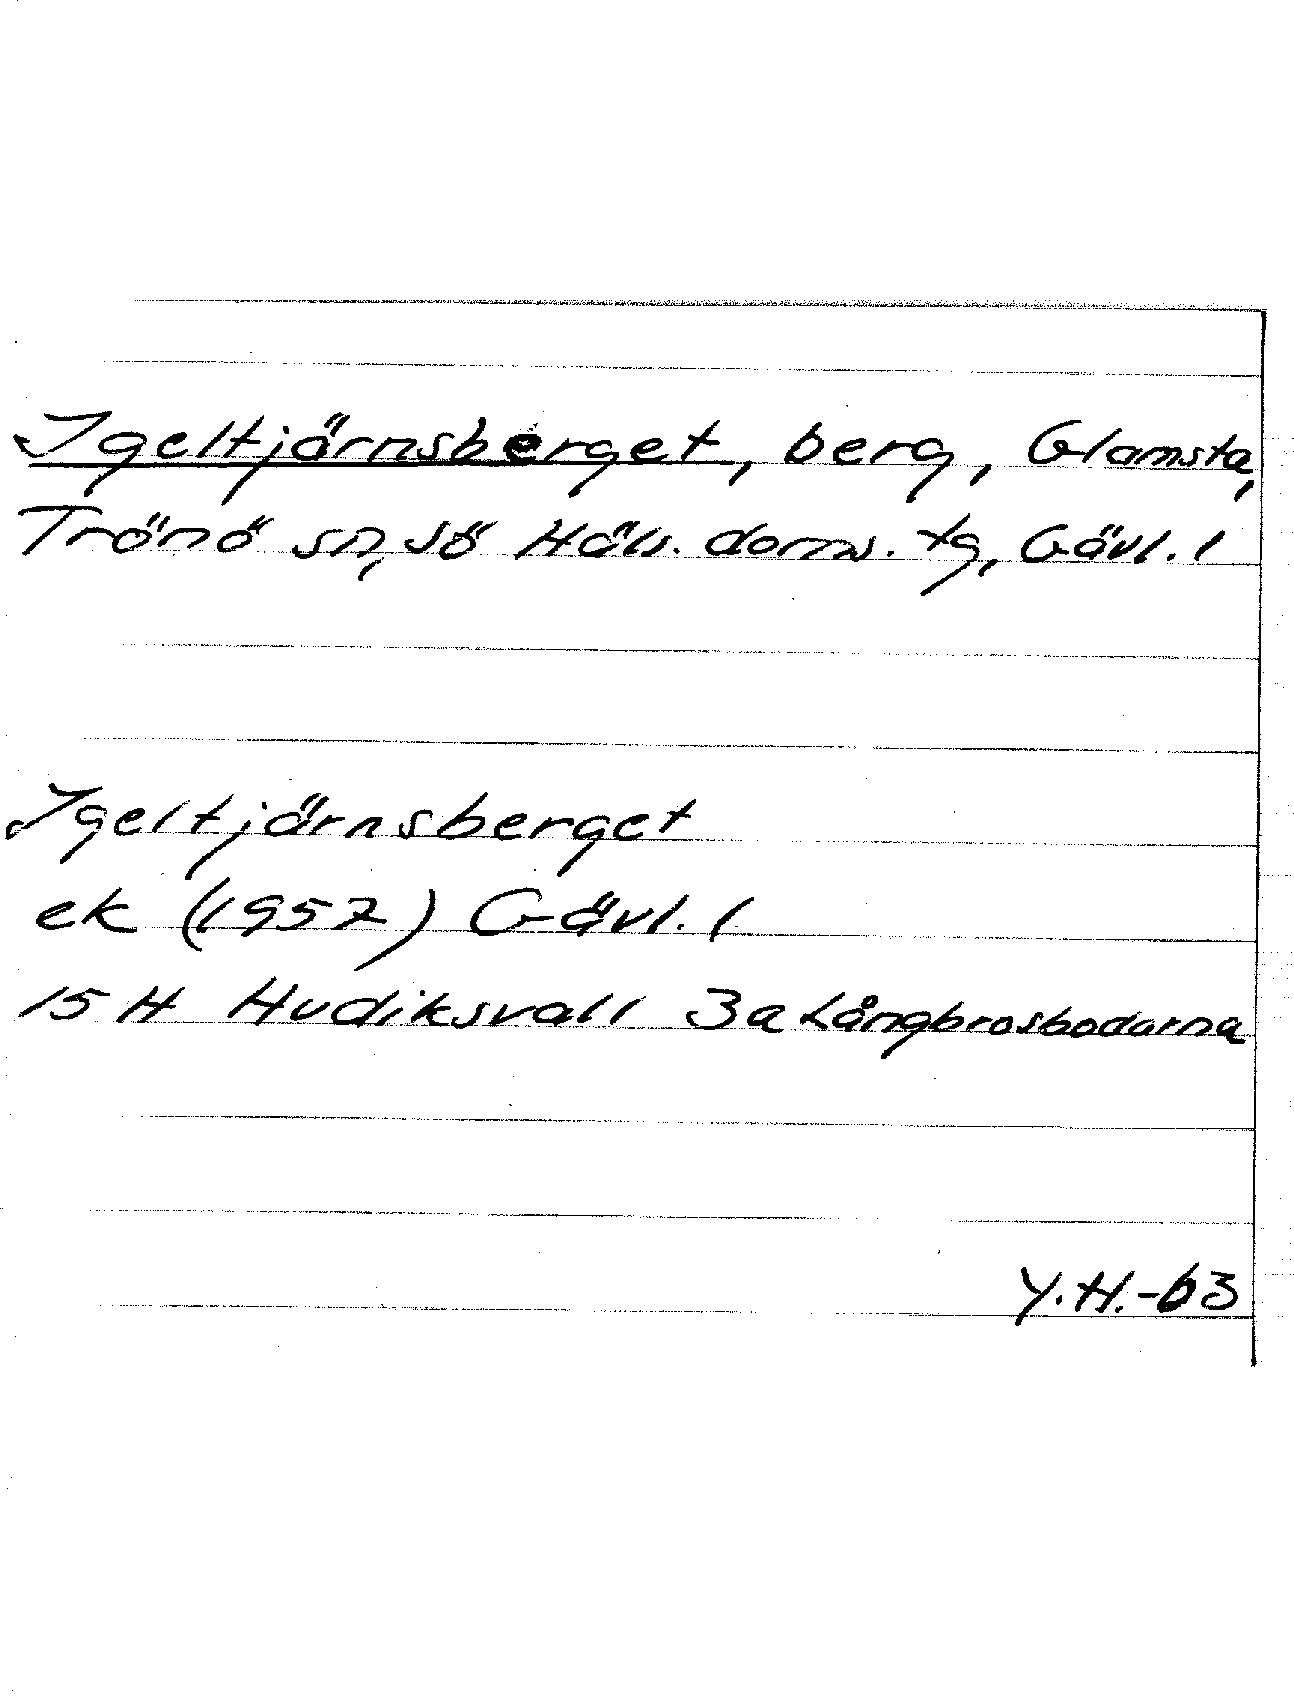 Igeltjärnsberget, berg, Glamsta,
Trönö sn, sö Häls. doms. tg, Gävl. l
Igeltjärnsberget
ek (1957) Gävl. l
15 H Hudiksvall 3a Långbrosbodarna
Y.H.-63